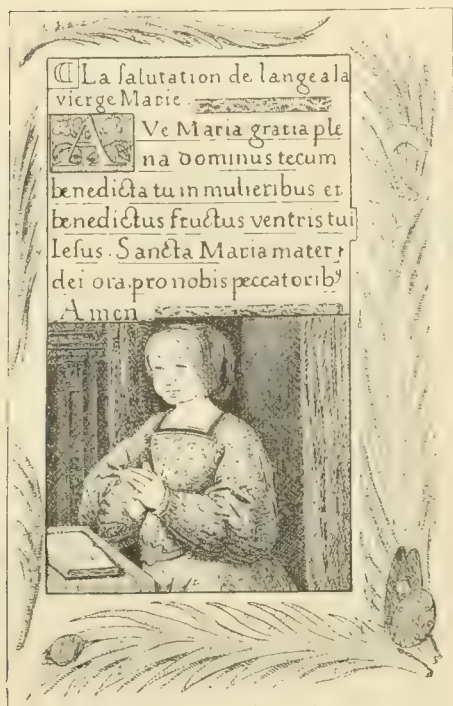 ℄ La salutation de langeala
vierge Marie .
AVe Maria gratia ple
na dominus tecum
benedicta tu in mulieribus et
benedictus fructus ventris tui
Iesus . Sancta Maria mater
dei ora.pro nobis peccatoribꝰ
Amen